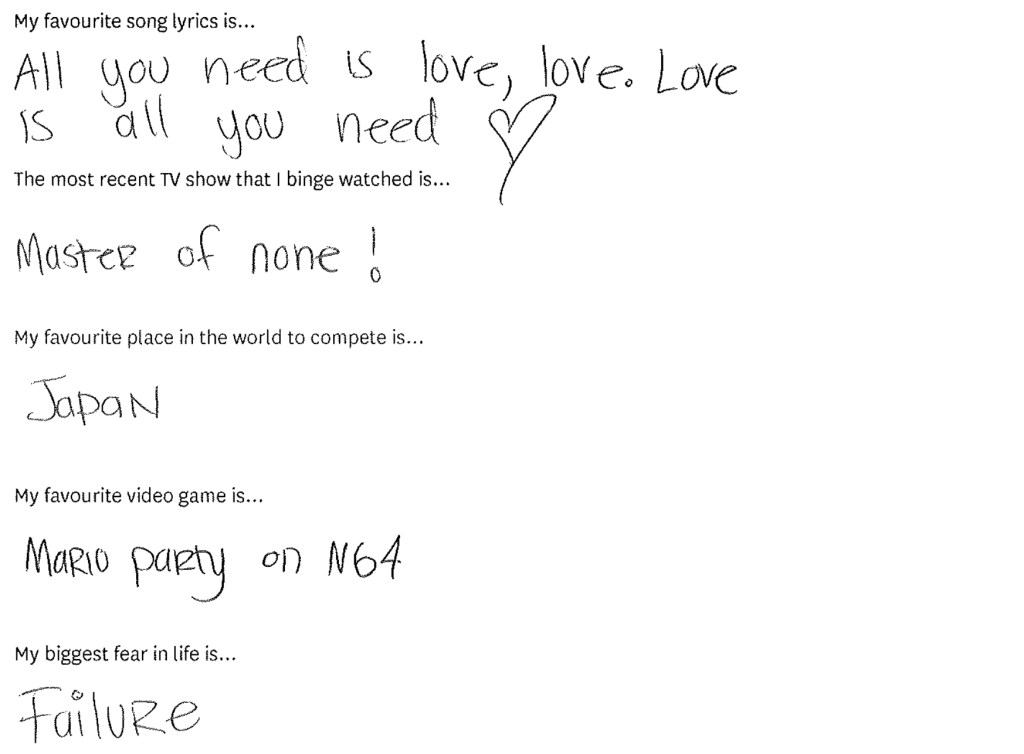 My favourite song lyrics is...
All you need is love, love. Love
is all you need
The most recent TV show that I binge watched is...
Master of none!
My favourite place in the world to compete is...
Japan
My favourite video game is...
Mario party on N64
My biggest fear in life is...
Failure